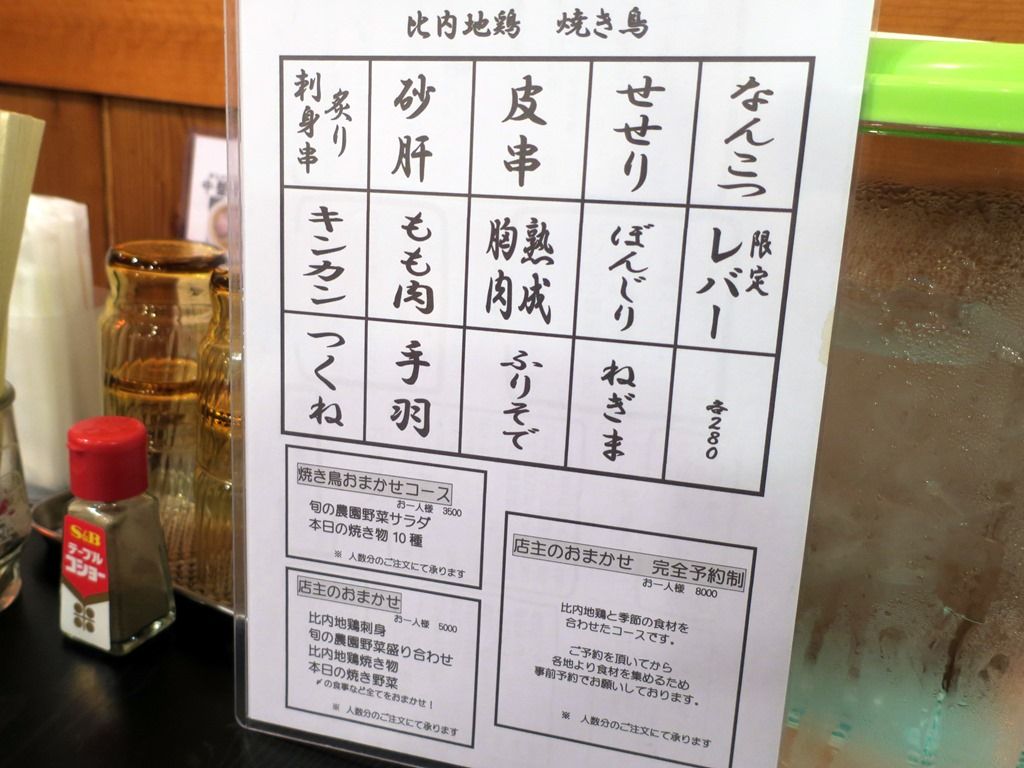 比内地鶏　焼き鳥
なんこつ
せせり
皮串
砂肝
炙り
刺身串
限定
レバー
ぼんじり
熟成
胸肉
もも肉
キンカン
各280
ねぎま
ふりそで
手羽
つくね
焼き鳥おまかせコース
お一人様　3500
旬の農園野菜サラダ
本日の焼き物10種
※ 人数分のご注文にて承ります
店主のおまかせ
お一人様　5000
比内地鶏刺身
旬の農園野菜盛り合わせ
比内地鶏焼き物
本日の焼き野菜
〆の食事など全ておまかせ！
※ 人数分のご注文にて承ります
店主のおまかせ　完全予約制
お一人様　8000
比内地鶏と季節の食材を
合わせたコースです。
ご予約を頂いてから
各地より食材を集めるため
事前予約でお願いしております。
※ 人数分のご注文にて承ります
S&B
テーブル
コショー